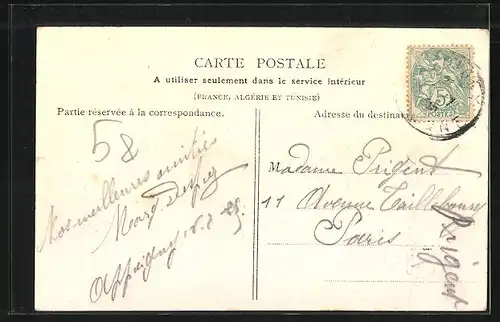 CARTE POSTALE
A utiliser seulement dans le service intérieur
(FRANCE, ALGÉRIE ET TUNISIE)
Partie réservée à la correspondance.
Adresse du destinat
58
Nos meilleures amitiés
Madame Prigent
11 Avenue Taillebourg
Paris
Prigent
5
POSTES